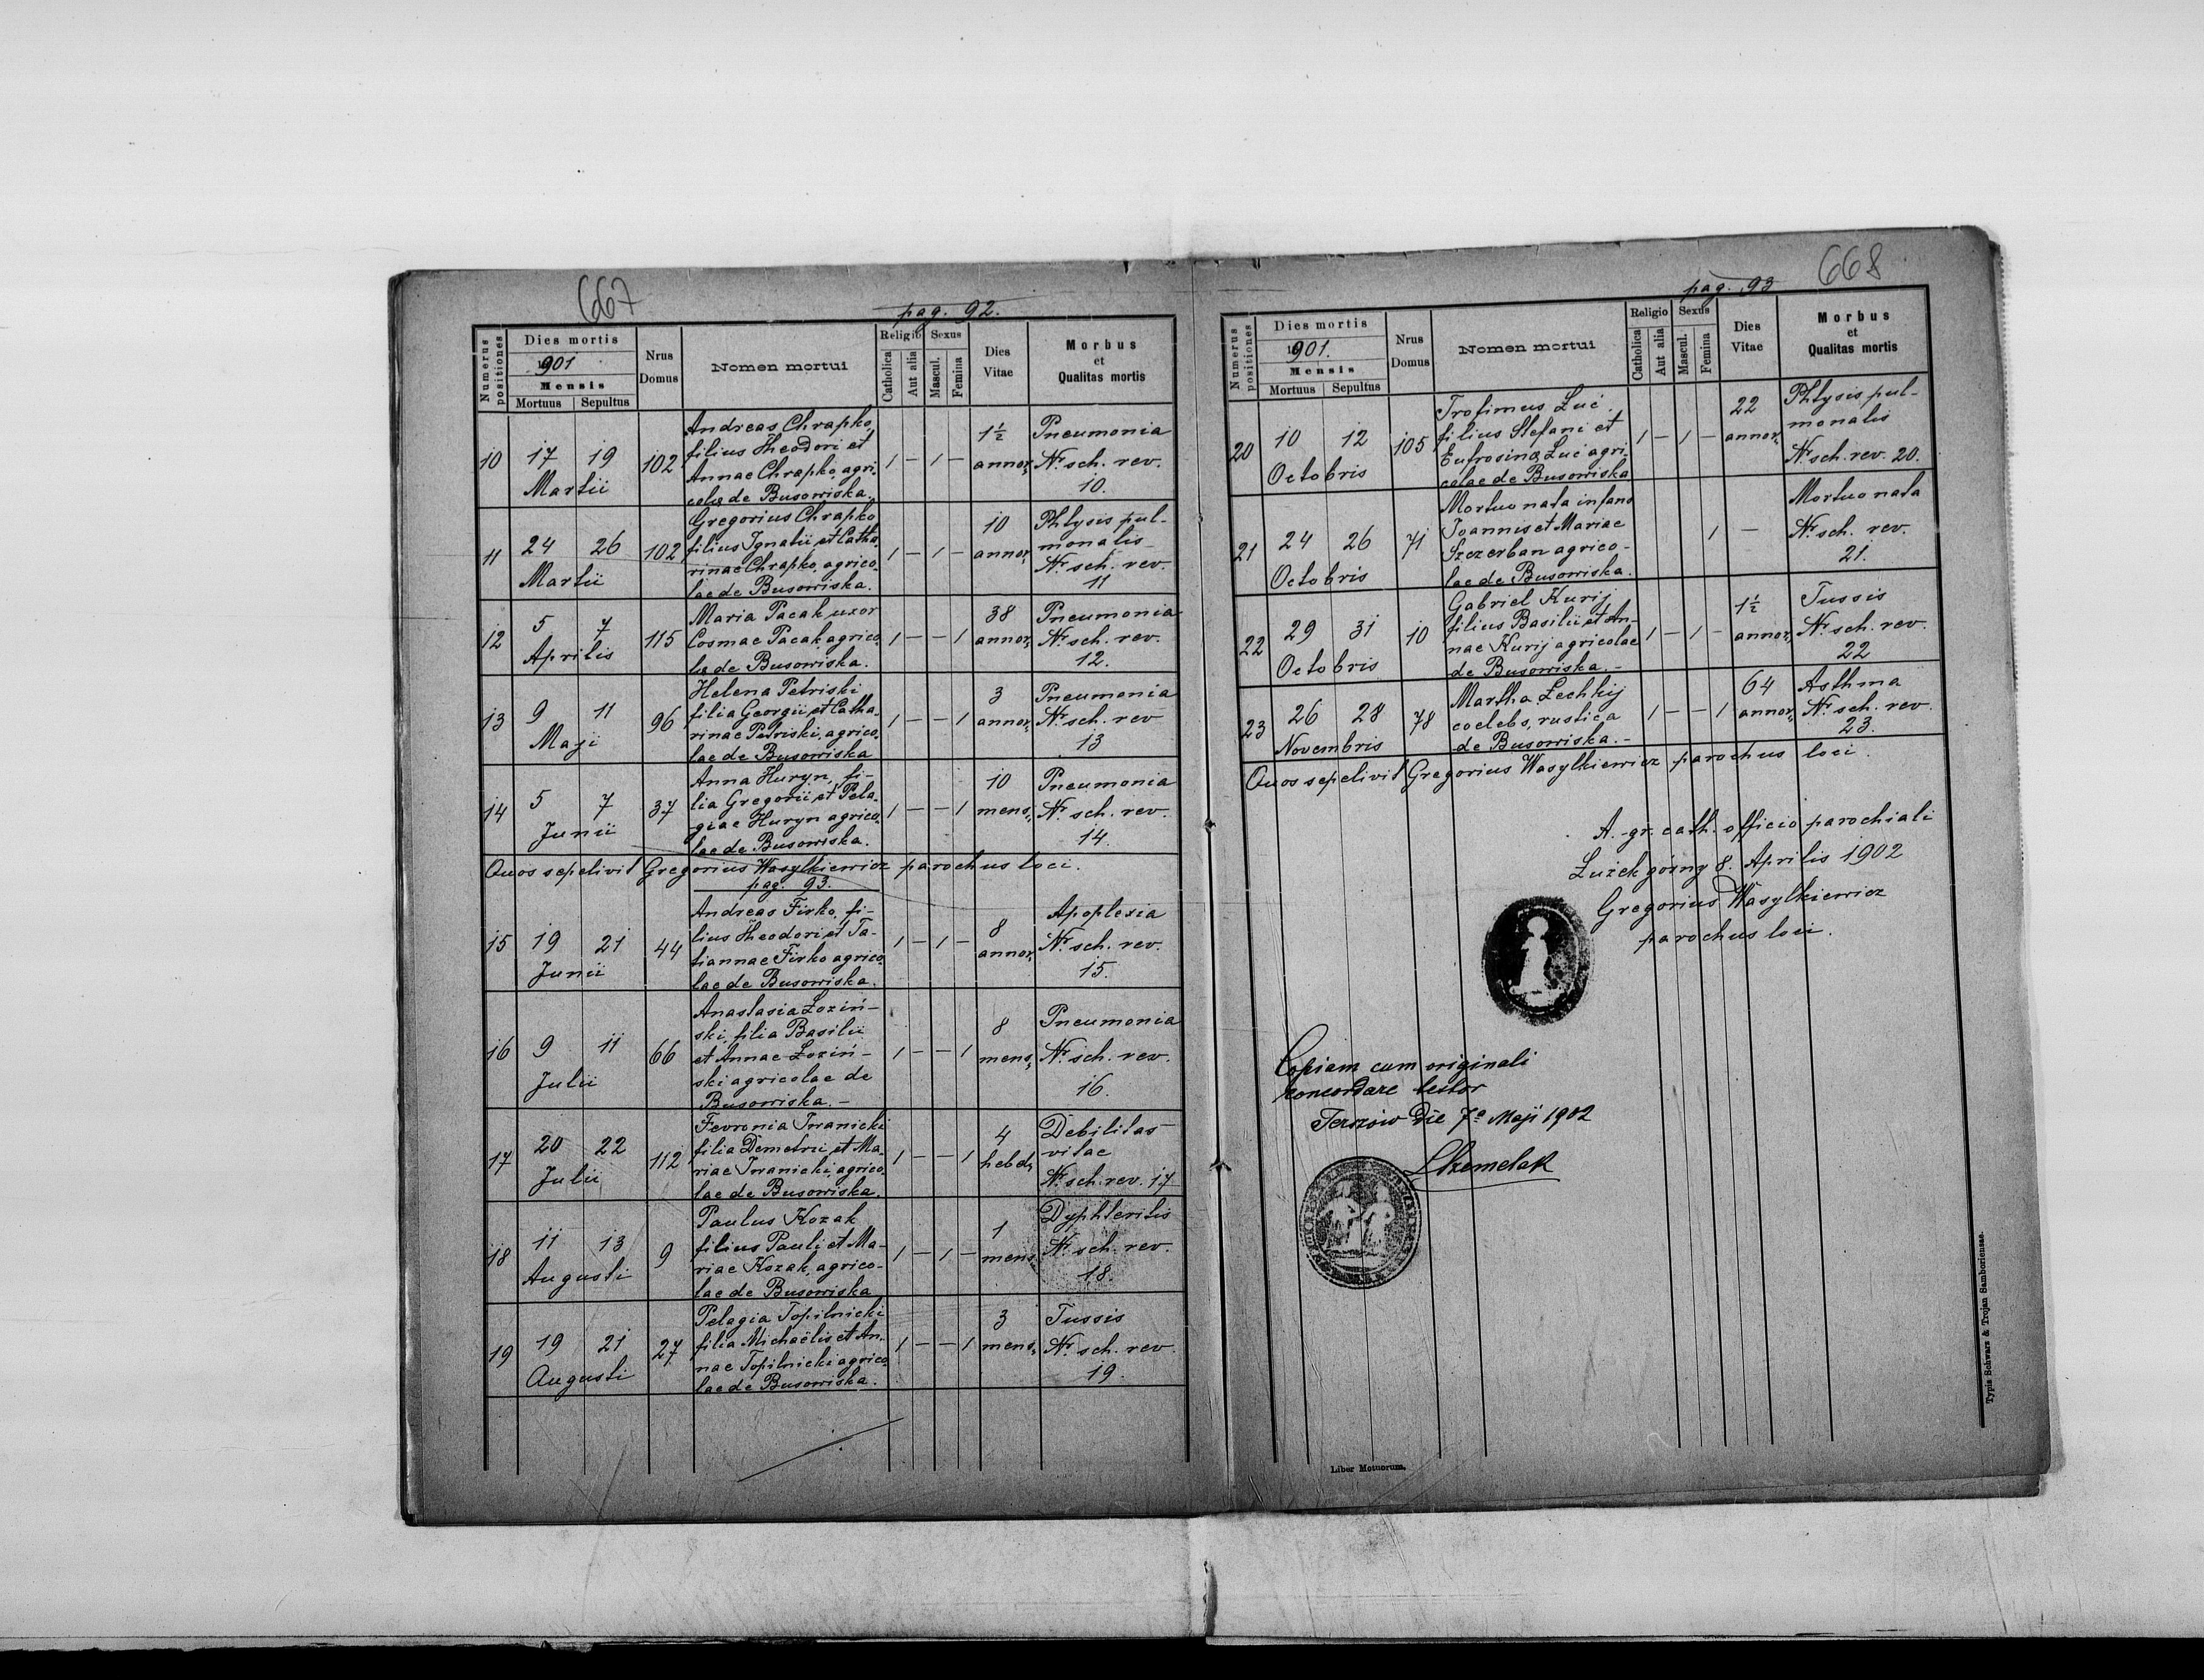 667
pag. 92.
Numerus positiones
Dies mortis
1901
Mensis
Mortuus Sepultus
Nrus Domus
Nomen mortui
Religio
Catholica
Aut alia
Sexus
Mascul.
Femina
Dies Vitae
Morbus
et
Qualitas mortis
10 17 19 Martii 102
Andreas Chrapko,
filius Theodori et
Annae Chrapko, agri-
colae de Busowiska.
1 – 1 – 1½ annor,
Pneumonia
Nr sch. rev.
10.
11 24 26 Martii 102
Gregorius Chrapko
filius Ignatii et Catha-
rinae Chrapko, agrico-
lae de Busowiska.
1 – 1 – 10 annor,
Phtysis pul-
monalis
Nr sch. rev.
11
12 5 7 Aprilis 115
Maria Pacak uxor
Cosmae Pacak, agrico-
lae de Busowiska.
1 – – 1 38 annor,
Pneumonia
Nr sch. rev.
12.
13 9 11 Maji 96
Helena Petriski
filia Georgii et Catha-
rinae Petriski, agrico-
lae de Busowiska
1 – – 1 3 annor,
Pneumonia
Nr sch. rev
13
14 5 7 Junii 37
Anna Huryn, fi-
lia Gregorii et Pela-
giae Huryn agrico-
lae de Busowiska.
1 – – 1 10 mens,
Pneumonia
Nr sch. rev.
14.
Quos sepelivit Gregorius Wasylkiewicz parochus loci.
pag. 93.
15 19 21 Junii 44
Andreas Firko, fi-
lius Theodori et Ta-
tiannae Firko agrico-
lae de Busowiska.
1 – 1 – 8 annor,
Apoplexia
Nr sch. rev.
15.
16 9 11 Julii 66
Anastasia Łoziń-
ski, filia Basilii
et Annae Łoziń-
ski agricolae de
Busowiska. –
1 – – 1 8 mens,
Pneumonia
Nr sch. rev.
16.
17 20 22 Julii 112
Fevronia Iwanicki
filia Demetrii et Ma-
riae Iwanicki agrico-
lae de Busowiska.
1 – – 1 4 hebd,
Debilitas
vitae
Nr sch. rev. 17
18 11 13 Augusti 9
Paulus Kozak
filius Pauli et Ma-
riae Kozak, agrico-
lae de Busowiska
1 – 1 – 1 mens
Dyphteritis
Nr sch. rev.
18.
19 19 21 Augusti 27
Pelagia Topilnicki
filia Michaëlis et An-
nae Topilnicki agrico-
lae de Busowiska.
1 – – 1 3 mens,
Tussis
Nr sch. rev.
19.
668
pag. 93
Numerus positiones
Dies mortis
1901.
Mensis
Mortuus Sepultus
Nrus Domus
Nomen mortui
Religio
Catholica
Aut alia
Sexus
Mascul.
Femina
Dies Vitae
Morbus
et
Qualitas mortis
20 10 12 Octobris 105
Trofimus Łuć.
filius Stefani et
Eufrosinae Łuć agri-
colae de Busowiska
1 – 1 – 22 annor,
Phtysis pul-
monalis
Nr sch. rev. 20.
21 24 26 Octobris 71
Mortuo nata infans
Joannis et Mariae
Szczerban agrico-
lae de Busowiska.
1 –
Mortuo nata
Nr sch. rev.
21.
22 29 31 Octobris 10
Gabriel Kurij
filius Basilii et An-
nae Kurij agricolae
de Busowiska. –
1 – 1 – 1½ annor,
Tussis
Nr sch. rev.
22
23 26 28 Novembris 78
Martha Lechkij
coelebs, rustica
de Busowiska. –
1 – – 1 64 annor,
Asthma
Nr sch. rev.
23.
Quos sepelivit Gregorius Wasylkiewicz parochus loci.
A gr. cath. officio parochiali
Łużek górny 8. Aprilis 1902
Gregorius Wasylkiewicz
parochus loci.
Copiam cum originali
concordare testor
Terszów Die 7a Maji 1902
Liber Motuorum.
Typis Schwarz & Trojan Samboriensae.